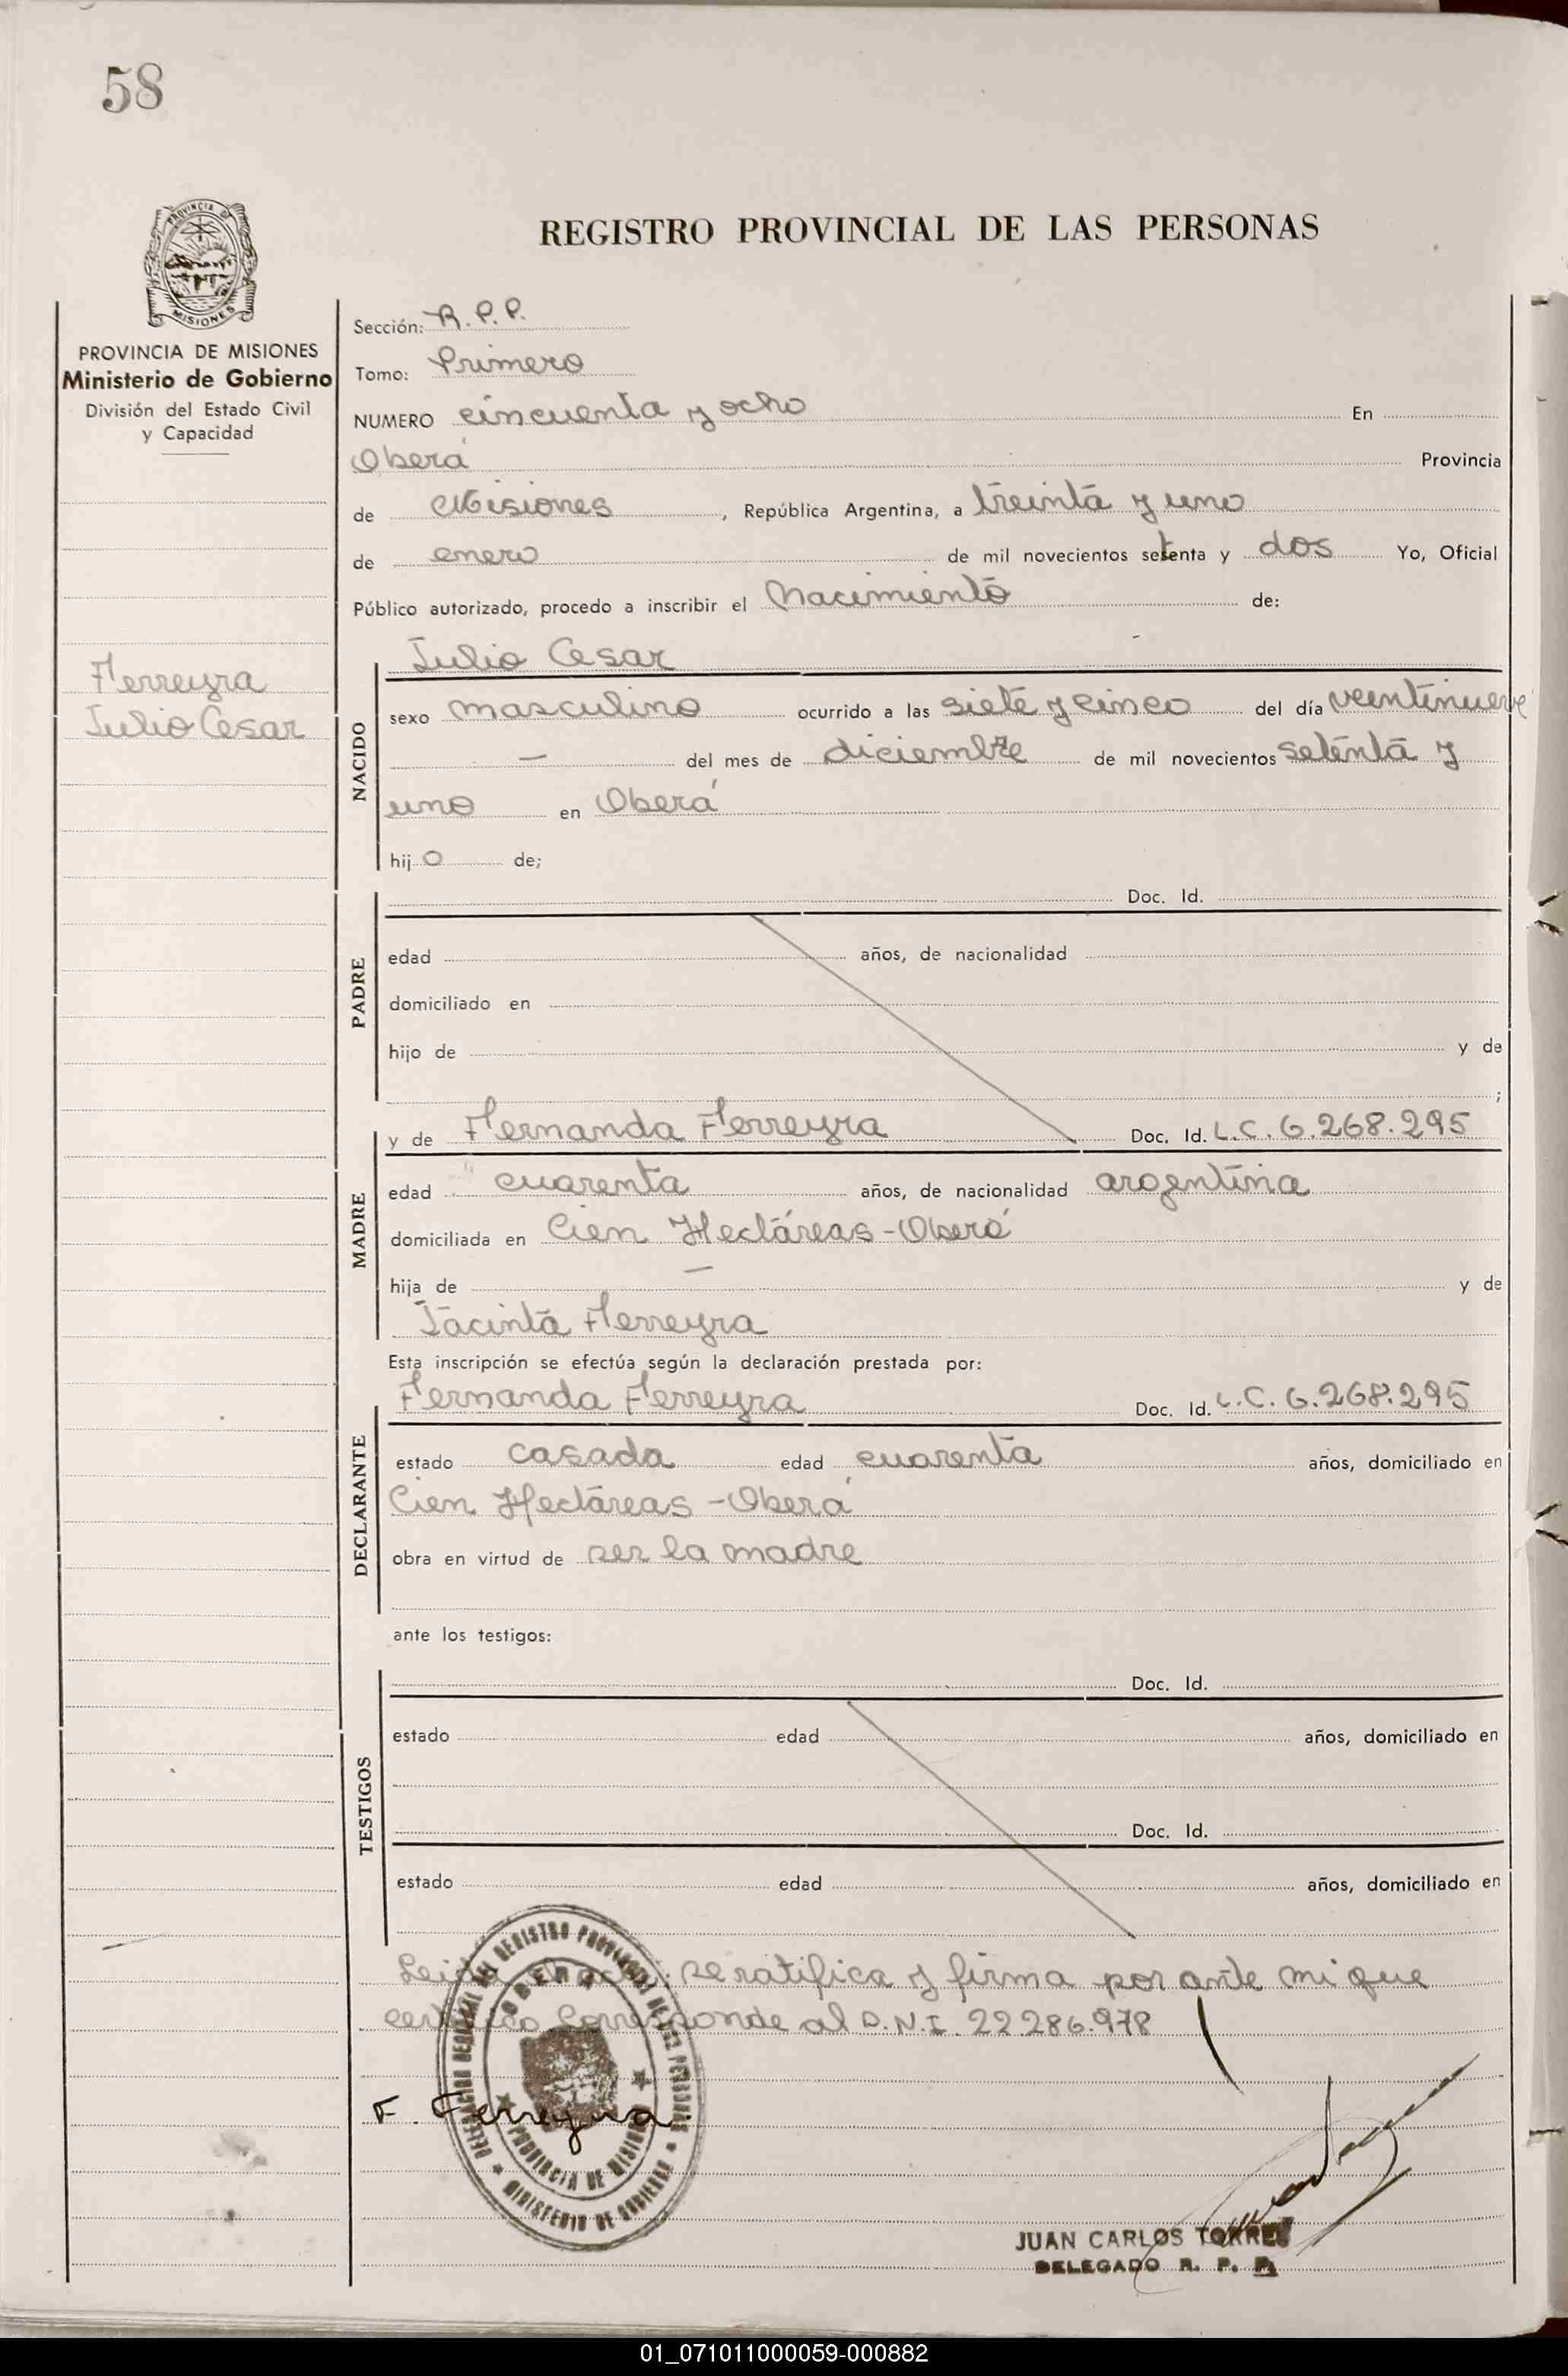 58
PROVINCIA DE
MISIONES
PROVINCIA DE MISIONES
Ministerio de Gobierno
División del Estado Civil
y Capacidad
Ferreyra
Julio Cesar
REGISTRO PROVINCIAL DE LAS PERSONAS
Sección: R.P.P.
Tomo: Primero
NUMERO cincuenta y ocho En
Oberá Provincia
de Misiones, República Argentina, a treinta y uno
de enero de mil novecientos setenta y dos Yo, Oficial
Público autorizado, procedo a inscribir el Nacimiento de:
Julio Cesar
NACIDO
sexo masculino ocurrido a las siete y cinco del día veintinueve
— del mes de diciembre de mil novecientos setenta y
uno en Oberá
hijo de;
PADRE
Doc. Id.
edad años, de nacionalidad
domiciliado en
hijo de y de
;
MADRE
y de Fernanda Ferreyra Doc. Id. L.C. 6.268.295
edad cuarenta años, de nacionalidad argentina
domiciliada en Cien Hectáreas - Oberá
hija de — y de
Jacinta Ferreyra
Esta inscripción se efectúa según la declaración prestada por:
DECLARANTE
Fernanda Ferreyra Doc. Id. L.C. 6.268.295
estado casada edad cuarenta años, domiciliado en
Cien Hectáreas - Oberá
obra en virtud de ser la madre
ante los testigos:
TESTIGOS
Doc. Id.
estado edad años, domiciliado en
Doc. Id.
estado edad años, domiciliado en
Leida el acta: se ratifica y firma por ante mi que
certifico Corresponde al D.N.I. 22286.978
DELEGACION REGIONAL DEL REGISTRO PROVINCIAL DE LAS PERSONAS
OBERA
PROVINCIA DE MISIONES
MINISTERIO DE GOBIERNO
F. Ferreyra
JUAN CARLOS TORRES
DELEGADO R. P. P.
01_071011000059-000882